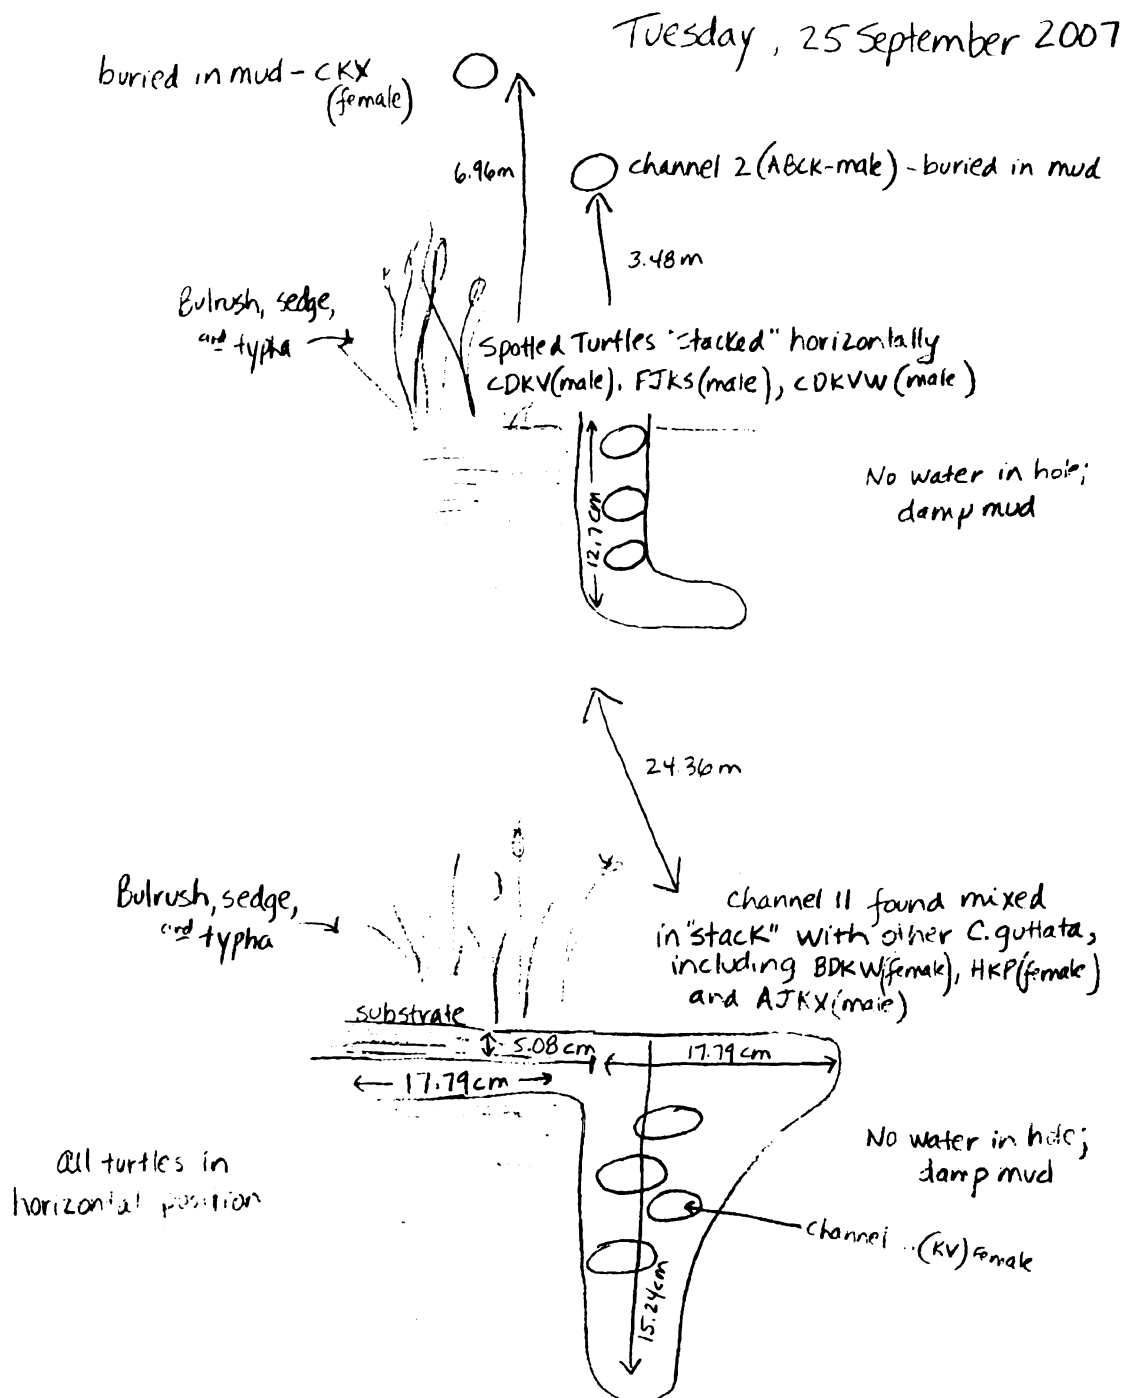 Tuesday, 25 September 2007
buried in mud - CKX
(female)
6.96m
channel 2 (ABCK-male) - buried in mud
3.48m
Bulrush, sedge,
and typha
Spotted Turtles "stacked" horizontally
CDKV(male), FJKS(male), CDKVW(male)
No water in hole;
damp mud
12.7cm
24.36m
Bulrush, sedge,
and typha
channel 11 found mixed
in "stack" with other C. guttata,
including BDKW(female), HKP(female)
and AJKX(male)
substrate
5.08cm
17.79cm
17.79cm
No water in hole;
damp mud
all turtles in
horizontal position
Channel (KV) Female
15.24cm